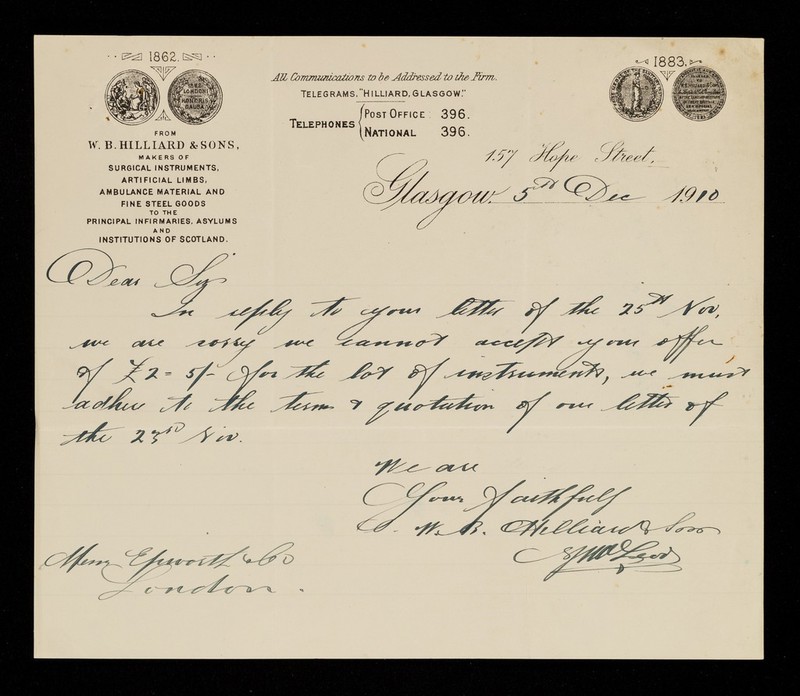 1862.
1883.
All Communications to be Addressed to the Firm.
TELEGRAMS, "HILLIARD, GLASGOW."
TELEPHONES { POST OFFICE 396.
NATIONAL 396.
FROM
W. B. HILLIARD & SONS,
MAKERS OF
SURGICAL INSTRUMENTS,
ARTIFICIAL LIMBS,
AMBULANCE MATERIAL AND
FINE STEEL GOODS
TO THE
PRINCIPAL INFIRMARIES, ASYLUMS
AND
INSTITUTIONS OF SCOTLAND.
157 Hope Street.
Glasgow. 5th Dec 1910
Dear Sir
In reply to your letter of the 25th Nov.
we are sorry we cannot accept your offer
of £2=5/- for the lot of instruments, we must
adhere to the terms & quotation of our letter of
the 23rd Nov.
We are
Yours faithfully
W. B. Hilliard & Sons
Messrs Epworth & Co
London.